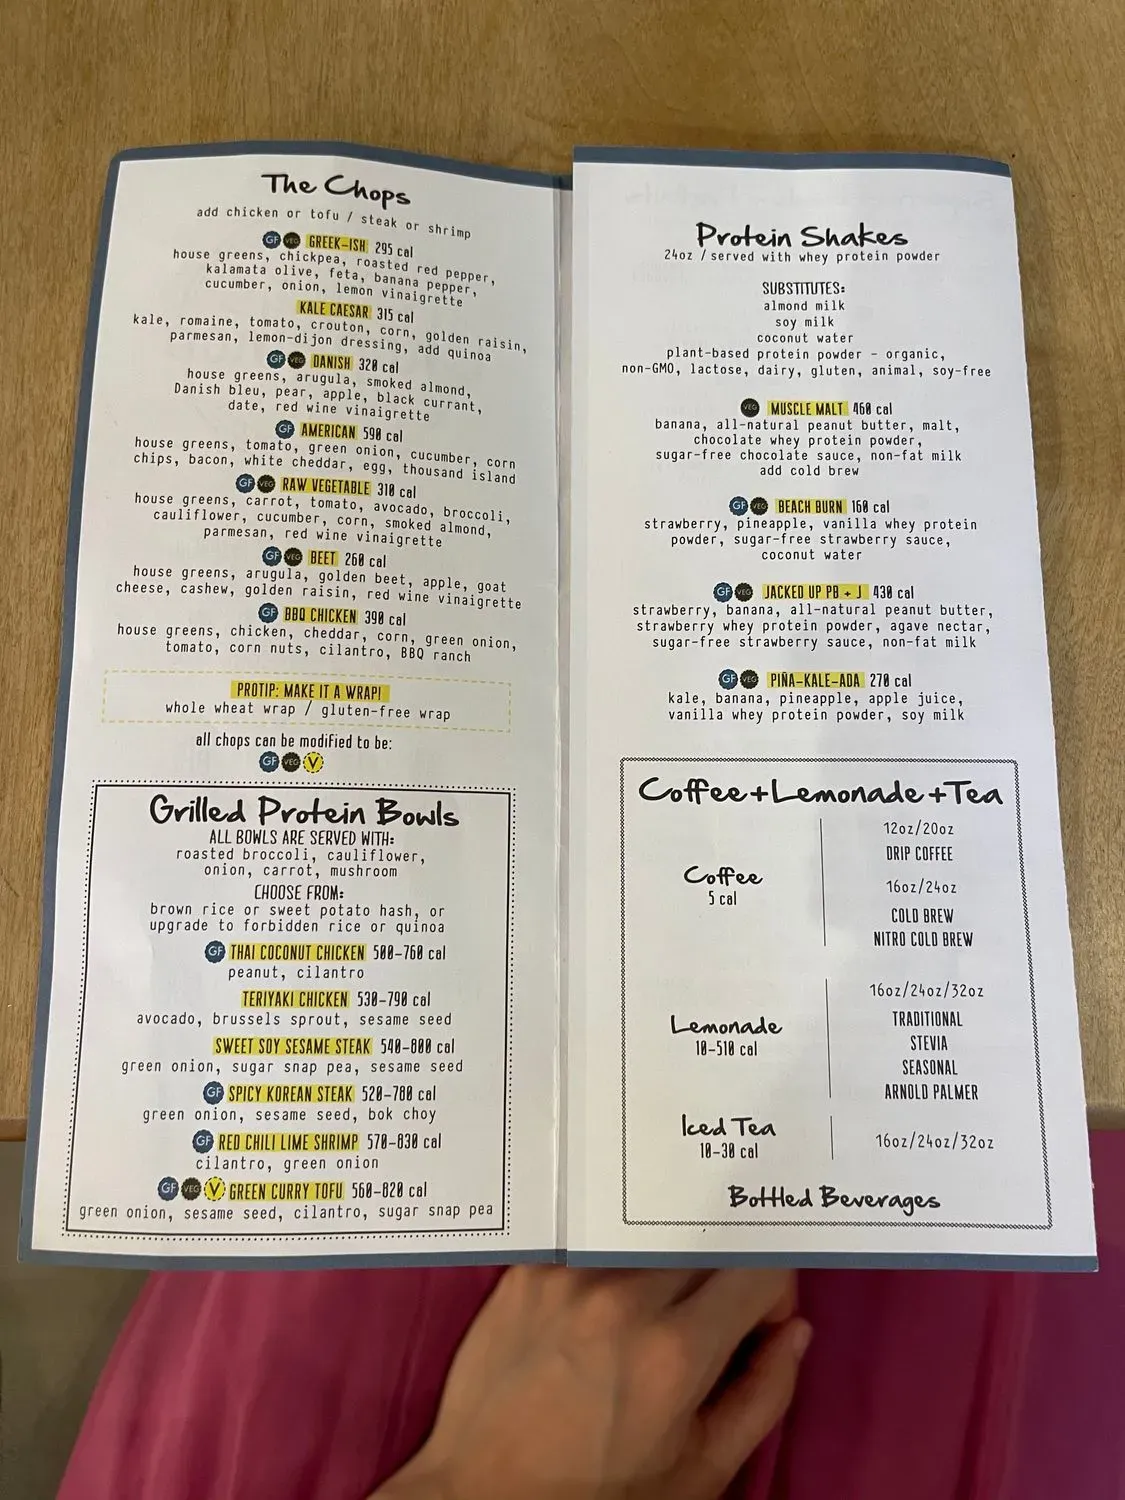 The Chops
add chicken or tofu / steak or shrimp
GF VEG GREEK-ISH 295 cal
house greens, chickpea, roasted red pepper,
kalamata olive, feta, banana pepper,
cucumber, onion, lemon vinaigrette
KALE CAESAR 315 cal
kale, romaine, tomato, crouton, corn, golden raisin,
parmesan, lemon-dijon dressing, add quinoa
GF VEG DANISH 320 cal
house greens, arugula, smoked almond,
Danish bleu, pear, apple, black currant,
date, red wine vinaigrette
GF AMERICAN 590 cal
house greens, tomato, green onion, cucumber, corn
chips, bacon, white cheddar, egg, thousand island
GF VEG RAW VEGETABLE 310 cal
house greens, carrot, tomato, avocado, broccoli,
cauliflower, cucumber, corn, smoked almond,
parmesan, red wine vinaigrette
GF VEG BEET 260 cal
house greens, arugula, golden beet, apple, goat
cheese, cashew, golden raisin, red wine vinaigrette
GF BBQ CHICKEN 390 cal
house greens, chicken, cheddar, corn, green onion,
tomato, corn nuts, cilantro, BBQ ranch
PROTIP: MAKE IT A WRAP!
whole wheat wrap / gluten-free wrap
all chops can be modified to be:
GF VEG V
Grilled Protein Bowls
ALL BOWLS ARE SERVED WITH:
roasted broccoli, cauliflower,
onion, carrot, mushroom
CHOOSE FROM:
brown rice or sweet potato hash, or
upgrade to forbidden rice or quinoa
GF THAI COCONUT CHICKEN 500-760 cal
peanut, cilantro
TERIYAKI CHICKEN 530-790 cal
avocado, brussels sprout, sesame seed
SWEET SOY SESAME STEAK 540-800 cal
green onion, sugar snap pea, sesame seed
GF SPICY KOREAN STEAK 520-780 cal
green onion, sesame seed, bok choy
GF RED CHILI LIME SHRIMP 570-830 cal
cilantro, green onion
GF VEG V GREEN CURRY TOFU 560-820 cal
green onion, sesame seed, cilantro, sugar snap pea
Protein Shakes
24oz / served with whey protein powder
SUBSTITUTES:
almond milk
soy milk
coconut water
plant-based protein powder - organic,
non-GMO, lactose, dairy, gluten, animal, soy-free
VEG MUSCLE MALT 460 cal
banana, all-natural peanut butter, malt,
chocolate whey protein powder,
sugar-free chocolate sauce, non-fat milk
add cold brew
GF VEG BEACH BURN 160 cal
strawberry, pineapple, vanilla whey protein
powder, sugar-free strawberry sauce,
coconut water
GF VEG JACKED UP PB + J 430 cal
strawberry, banana, all-natural peanut butter,
strawberry whey protein powder, agave nectar,
sugar-free strawberry sauce, non-fat milk
GF VEG PIÑA-KALE-ADA 270 cal
kale, banana, pineapple, apple juice,
vanilla whey protein powder, soy milk
Coffee+Lemonade+Tea
Coffee
5 cal
12oz/20oz
DRIP COFFEE
16oz/24oz
COLD BREW
NITRO COLD BREW
Lemonade
10-510 cal
16oz/24oz/32oz
TRADITIONAL
STEVIA
SEASONAL
ARNOLD PALMER
Iced Tea
10-30 cal
16oz/24oz/32oz
Bottled Beverages